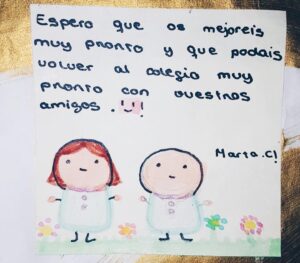 Espero que os mejoreis
muy pronto y que podais
volver al colegio muy
pronto con vuestros
amigos.!
Marta.C!